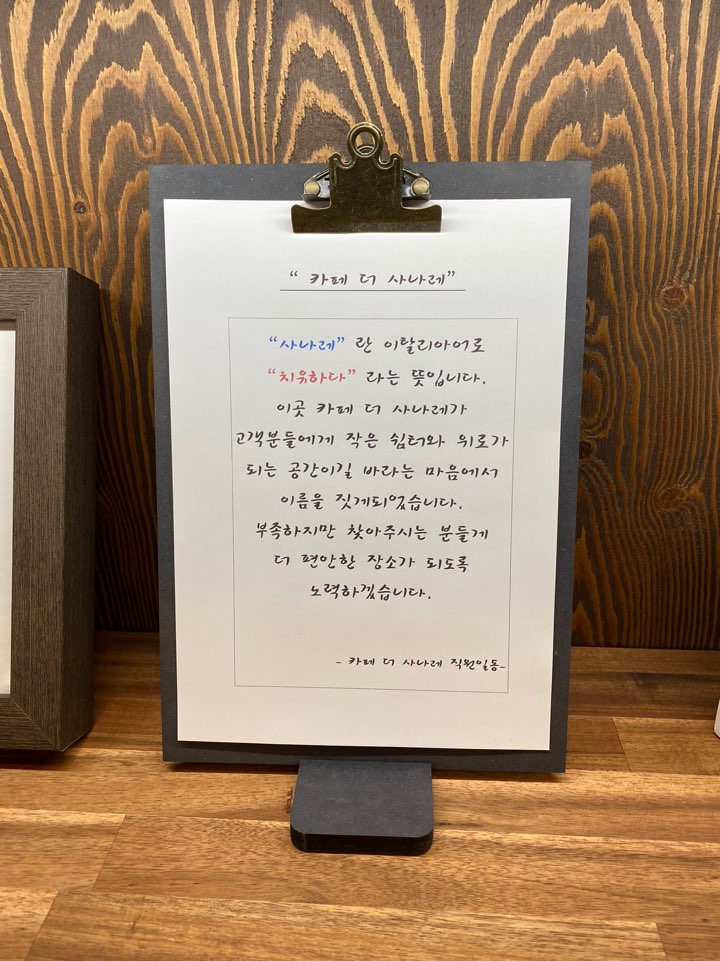 “ 카페 더 사나레”
“사나레” 란 이탈리아어로
“치유하다” 라는 뜻입니다.
이곳 카페 더 사나레가
고객분들에게 작은 쉼터와 위로가
되는 공간이길 바라는 마음에서
이름을 짓게되었습니다.
부족하지만 찾아주시는 분들게
더 편안한 장소가 되도록
노력하겠습니다.
- 카페 더 사나레 직원일동-